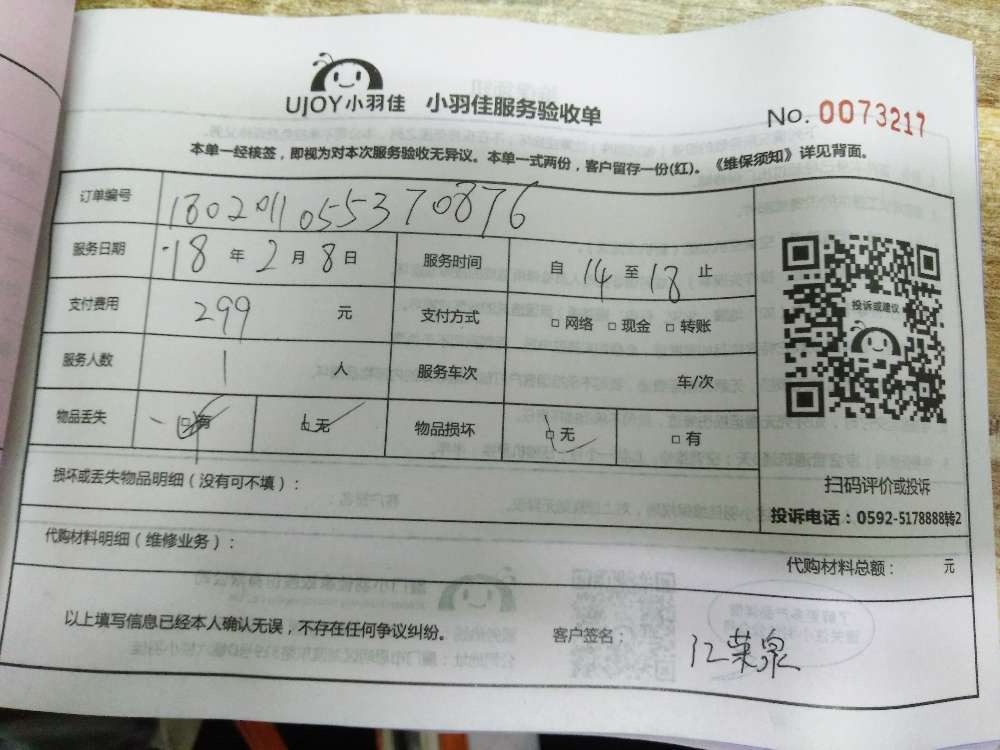 UJOY小羽佳 小羽佳服务验收单
No. 0073217
本单一经核签，即视为对本次服务验收无异议。本单一式两份，客户留存一份(红)。《维保须知》详见背面。
订单编号 180201105537​0876
服务日期 18 年 2 月 8 日 服务时间 自 14 至 18 止
支付费用 299 元 支付方式 □ 网络 □ 现金 □ 转账
投诉或建议
服务人数 1 人 服务车次 车/次
物品丢失 □ 有 □ 无 物品损坏 □ 无 □ 有
损坏或丢失物品明细（没有可不填）：
扫码评价或投诉
投诉电话：0592-5178888转2
代购材料明细（维修业务）：
代购材料总额： 元
以上填写信息已经本人确认无误，不存在任何争议纠纷。
客户签名： 江荣泉